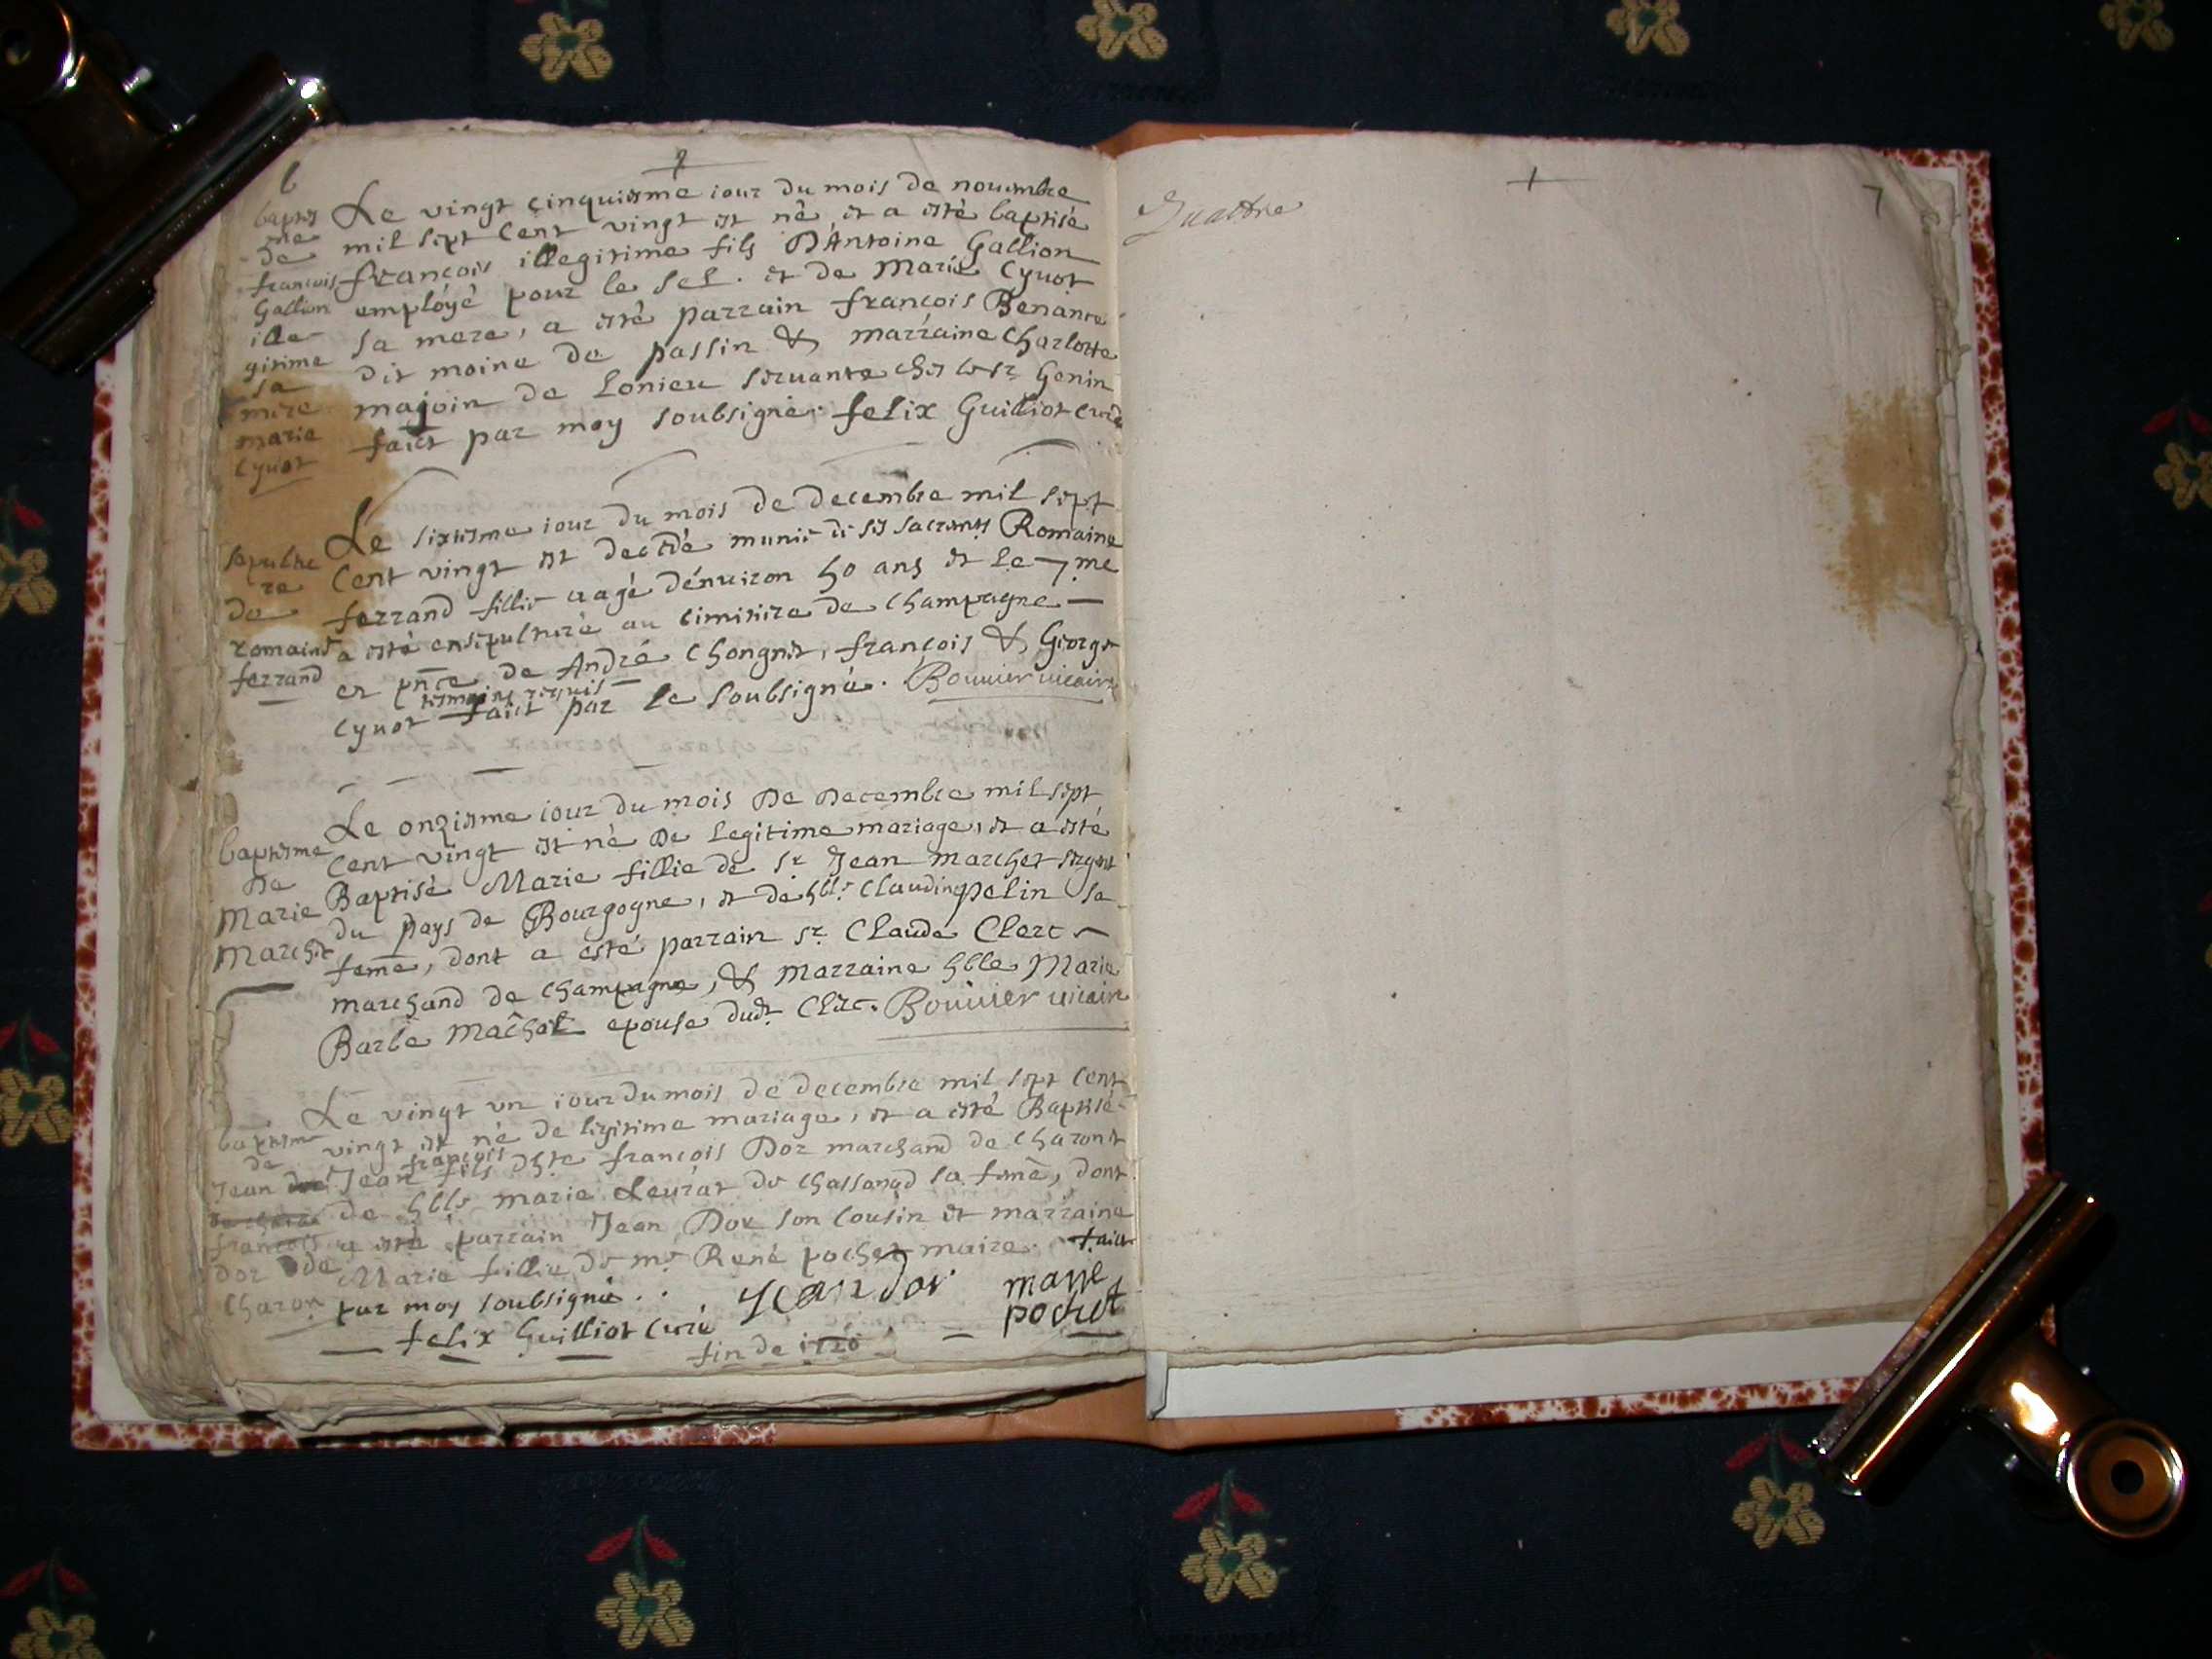 6
baptes
me
de
francois
Gallion
ille
gitime
sa
mere
marie
Cyuot
Le vingt cinquiesme iour du mois de nouembre
mil sept cent vingt est né et a esté baptisé
françois illegitime fils D'Antoine Gallion
employé pour le sel. et de Marie Cyuot
sa mere, a esté parrain françois Benante
dit moine de passin & marraine Charlotte
majoin de Lonieu seruante ches le sr Genin
faict par moy soubsigné. felix Guilliot curé
sepultu
re
de
romaine
ferrand
Le sixiesme iour du mois de decembre mil sept
Cent vingt est decedé munie de ses sacremts Romaine
ferrand fillie aagé dénuiron 50 ans et le 7me
a esté ensepulturé au cimitiere de Champagne
en pnce de André Chongnet, françois & George
tesmoins requis
Cyuot faict par le soubsigné. Bouuier uicaire
baptesme
De
Marie
Marchet
Le onziesme iour du mois De Decembre mil sept
Cent vingt est né De Legitime mariage, et a esté
Baptisé Marie fillie de sr Jean marchet sergent
du pays de Bourgogne, et de hble Claudine pelin sa
feme, dont a esté parrain sr Claude Clerc
marchand de Champagne, & marraine hble Marie
Barbe Machet epouse dudt Clerc. Bouuier uicaire
baptesm
de
Jean
françois
Dor de
Charon
Le vingt vn iour du mois de decembre mil sept cent
vingt est né de legitime mariage, et a esté Baptisé
françois
Jean fils françois Dor marchand de Charonet
de hble marie Leurat de Chassanod sa femé, dont
a esté parrain Jean Dor son cousin et marraine
Marie fillie de mr René pochet maire. faict
par moy soubsigné..
Jean dor
marye
pochet
felix Guilliot Curé
fin de 1720
Quattre
7